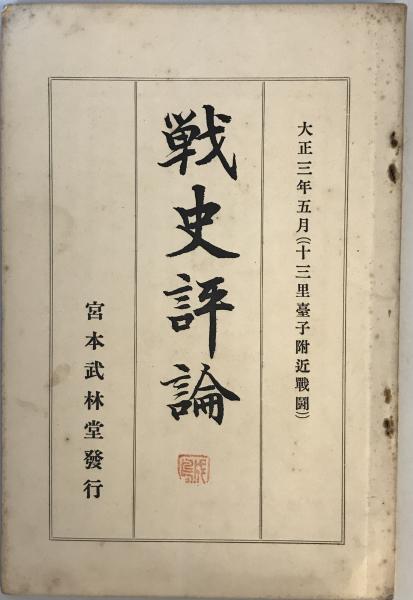 大正三年五月(十三里臺子附近戰鬪)
戦史評論
宮本武林堂發行